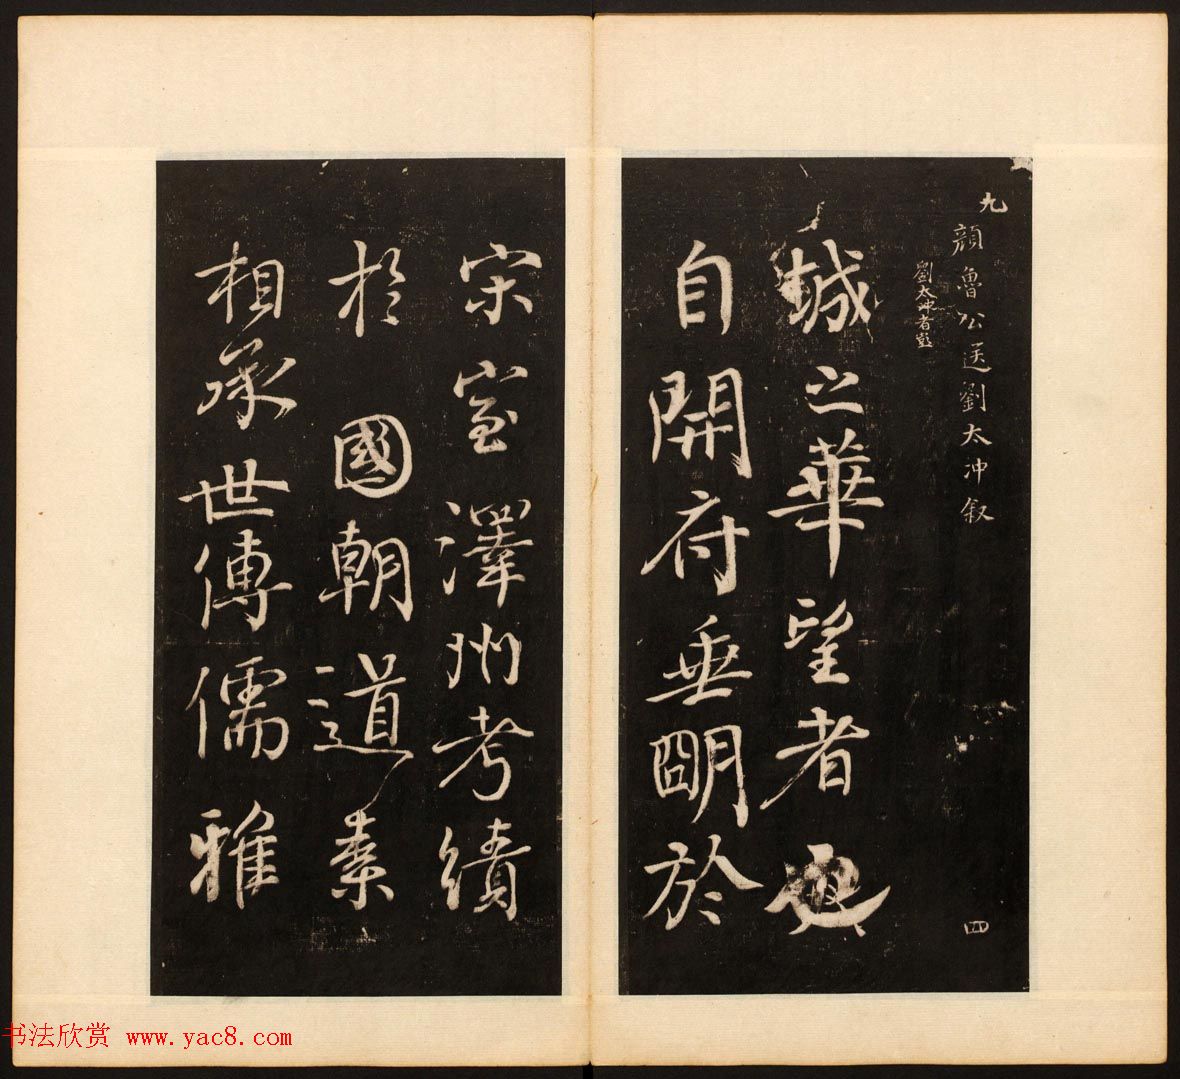 九
顏魯公送劉太沖叙
劉太沖者彭
城之華望者也
自開府垂明於
宋室澤州考績
於國朝道素
相承世傳儒雅
四
书法欣赏 www.yac8.com